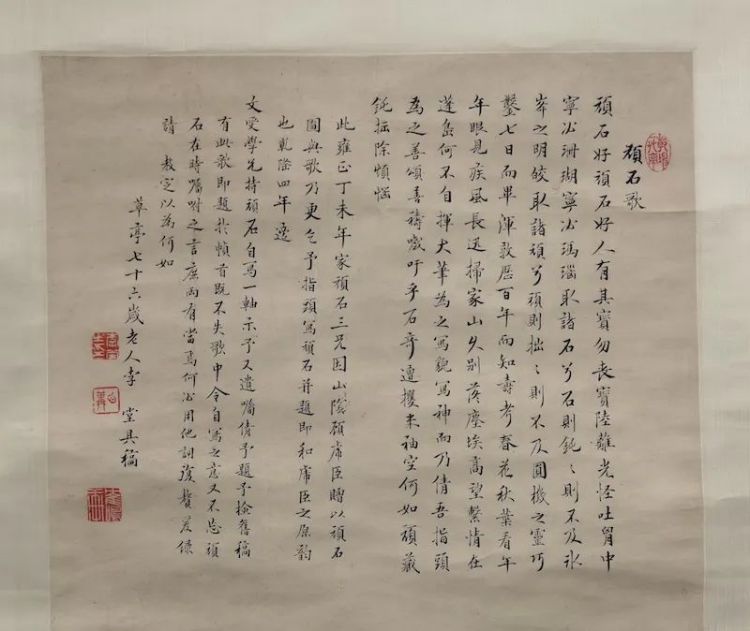 頑石歌
頑石好頑石好人有其寶勿喪寶陸離光怪吐胃中
寧必珊瑚寧必瑪瑙取諸石兮石則鈍〻則不及冰
崋之明皎取諸頑兮頑則拙〻則不及圓機之靈巧
鑿七日而畢渾敦歷百年而知壽考春花秋葉看年
年眼見疾風長送掃家山久別落塵埃高望繫情在
蓬島何不自揮大筆為之寫貌寫神而乃倩吾指頭
為之善頌善禱噫吁乎石奇遭攫来袖空何如頑藏
鈍拙除煩惱
此雍正丁未年家頑石三兄因山陰顧庸臣贈以頑石
圖與歌乃更乞予指頭寫頑石并題即和庸臣之原韵
也乾隆四年
文受學兄持頑石自寫一軸示予又遺囑倩予題予撿舊稿
有此歌即題於幀首既不失歌中令自寫之意又不忘頑
石在時囑咐之言庶兩有當焉何必用他訓
請 教定以為何如
草亭七十六歲老人李 堂具稿